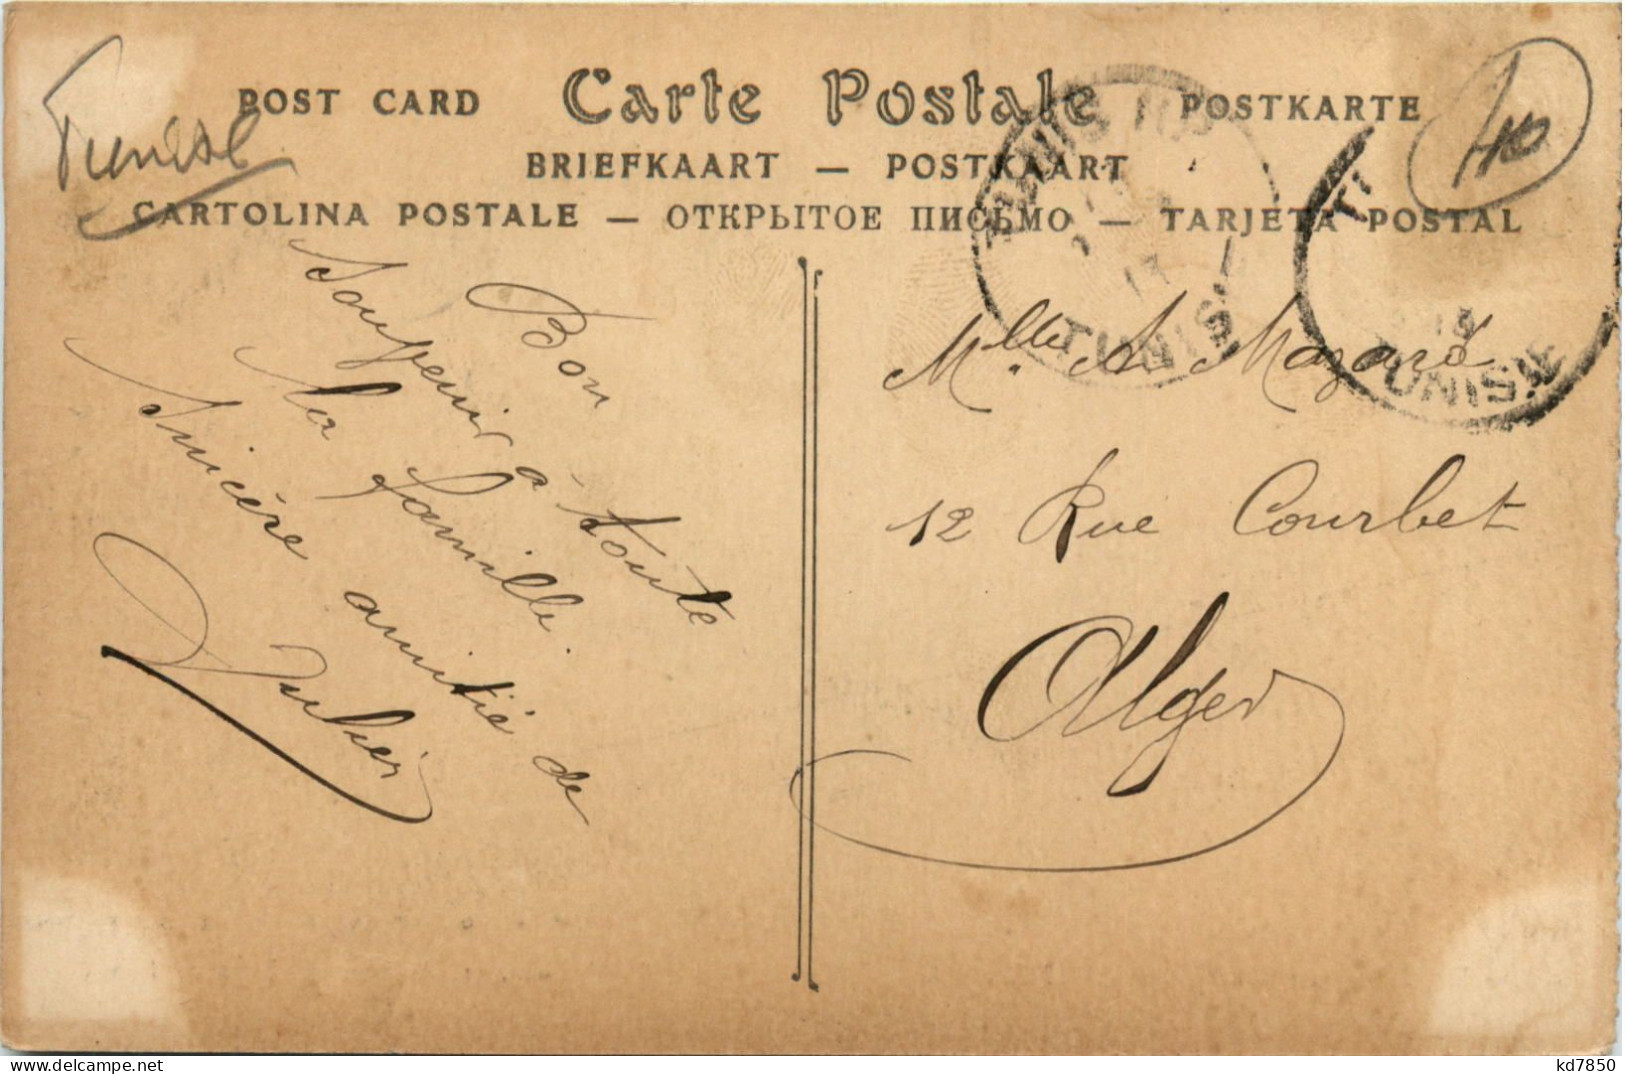 Tunisie
40
POST CARD Carte Postale POSTKARTE
BRIEFKAART — POSTKAART
CARTOLINA POSTALE — ОТКРЫТОЕ ПИСЬМО — TARJETA POSTAL
TUNIS
TUNIS
TUNISIE
Bon
Souvenir à toute
la famille.
Sincère amitié de
Mlle. A. Mazard
12 Rue Courbet
Alger
kd7850